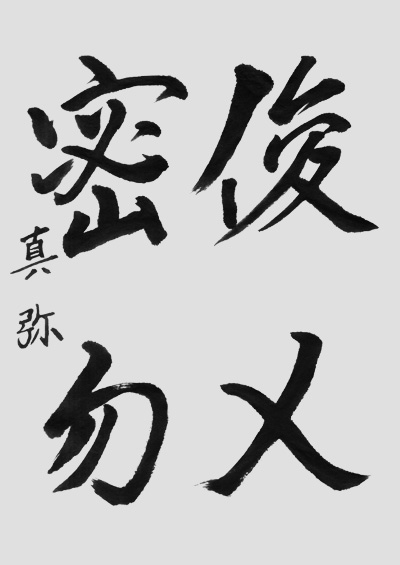 俊乂
密勿
真弥